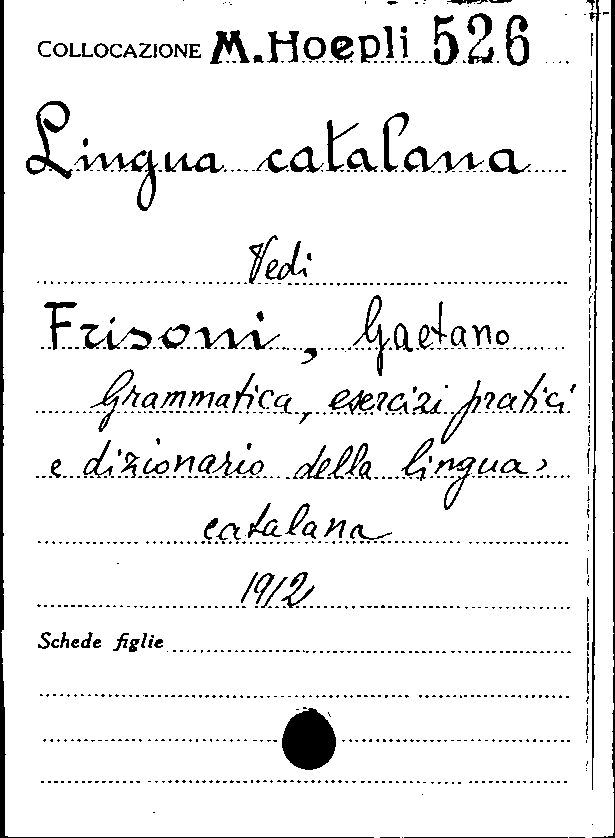 COLLOCAZIONE M.Hoepli 526
Lingua catalana
Vedi
Frisoni, Gaetano
Grammatica, esercizi pratici
e dizionario della lingua
catalana
1912
Schede figlie